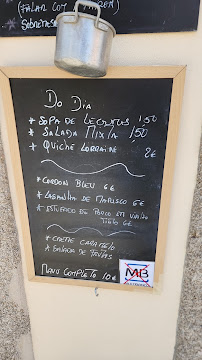 (FALAR COM
SOBREMESA
Do Dia
* SOPA DE LEGUMES 1'50
* SALADA MIXTA 1'50
* QUICHE LORRAINE 2€
* CORDON BLEU 6€
* LASANHA DE MARISCO 6€
* ESTUFADO DE PORCO EM VINHO
TINTO 6€
* CREME CARAMELO
* SALADA DE FRUTAS
MENU COMPLETO 10€
MB